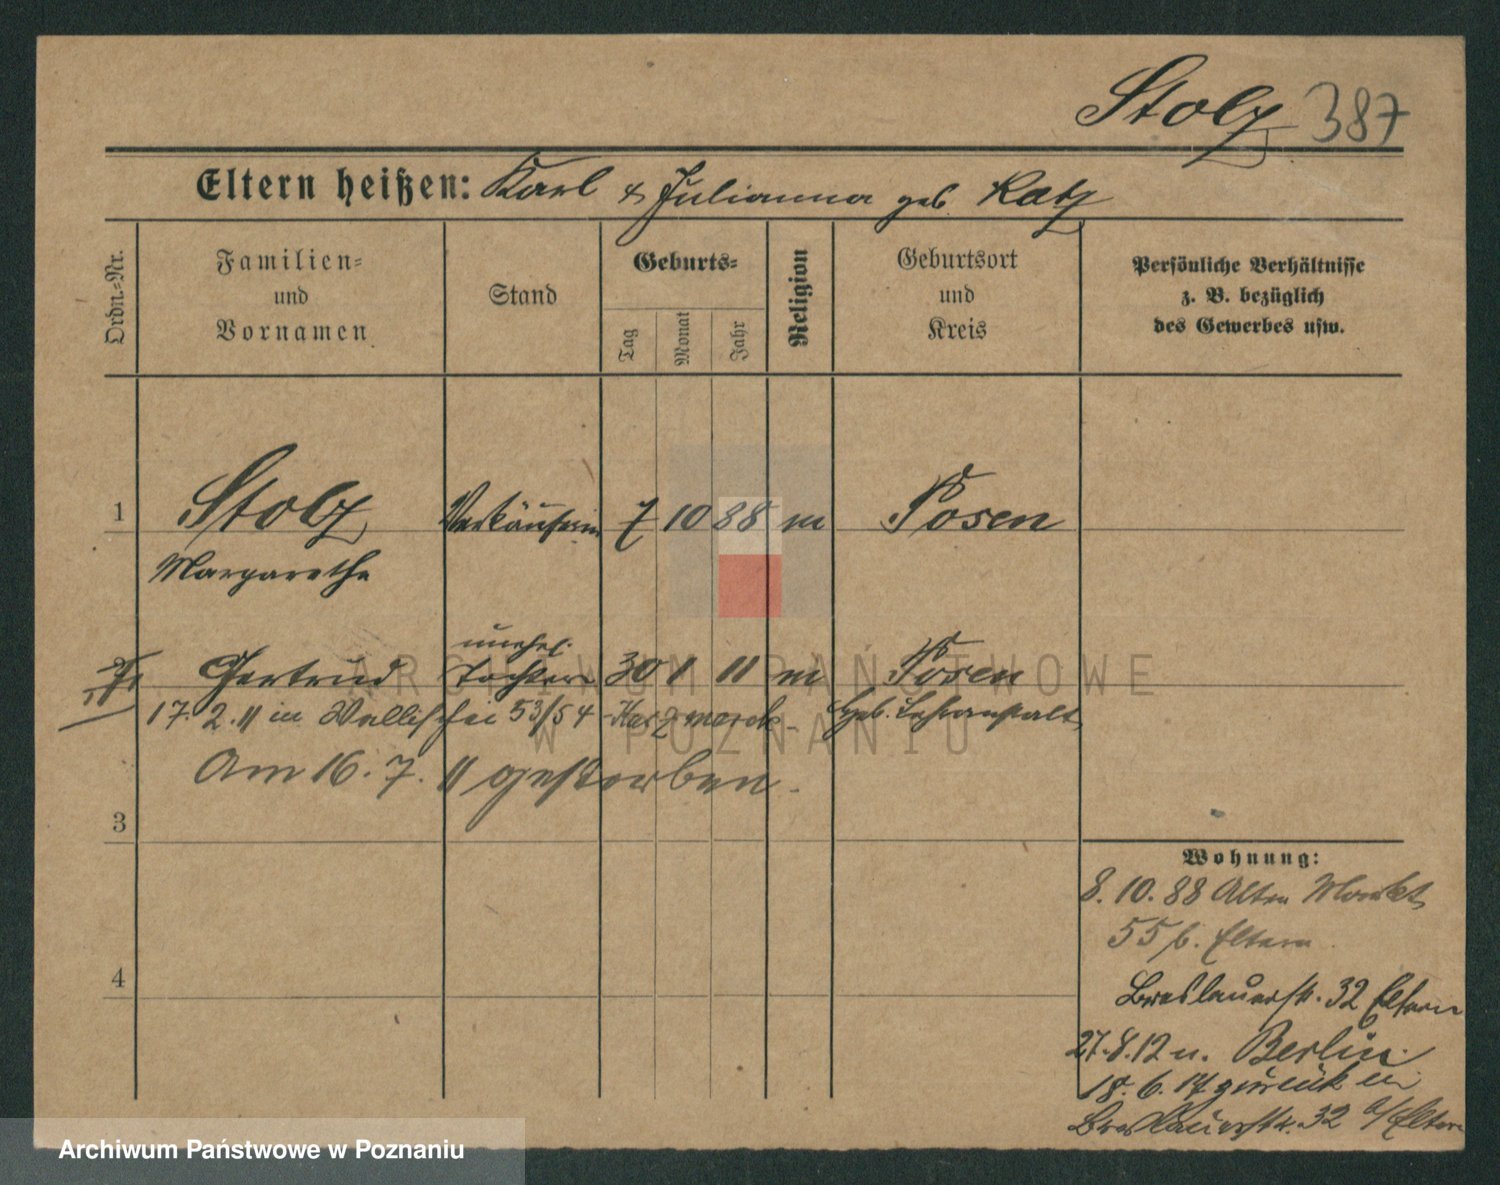 Stolz 387
Eltern heißen: Karl & Julianna geb Katz
Ordn.-Nr.
Familien-
und
Vornamen
Stand
Geburts-
Tag
Monat
Jahr
Religion
Geburtsort
und
Kreis
Persönliche Verhältnisse
z. B. bezüglich
des Gewerbes usw.
1 Stolz Verkäuferin 7 10 88 m Posen
Margarethe
unehel.
2 Gertrud Tochter 30 1 11 m Posen
17. 2. 11 in Wallischei 53/54 Geb. Lehranstalt
Am 16. 7. 11 gestorben.
3
4
Wohnung:
8. 10. 88 Alten Markt
55 b. Eltern
Breslauerstr. 32 Eltern
27. 8. 12 n. Berlin.
18. 6. 14 zurück in
Breslauerstr. 32 b/Eltern
ARCHIWUM PAŃSTWOWE
W POZNANIU
Archiwum Państwowe w Poznaniu